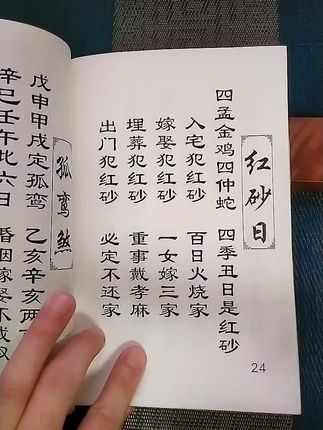 红砂日
四孟金鸡四仲蛇 四季丑日是红砂
入宅犯红砂 百日火烧家
嫁娶犯红砂 一女嫁三家
埋葬犯红砂 重事戴孝麻
出门犯红砂 必定不还家
24
孤鸾煞
戊申甲戌定孤鸾 乙亥辛亥
辛巳壬午北六日 婚姻嫁娶不